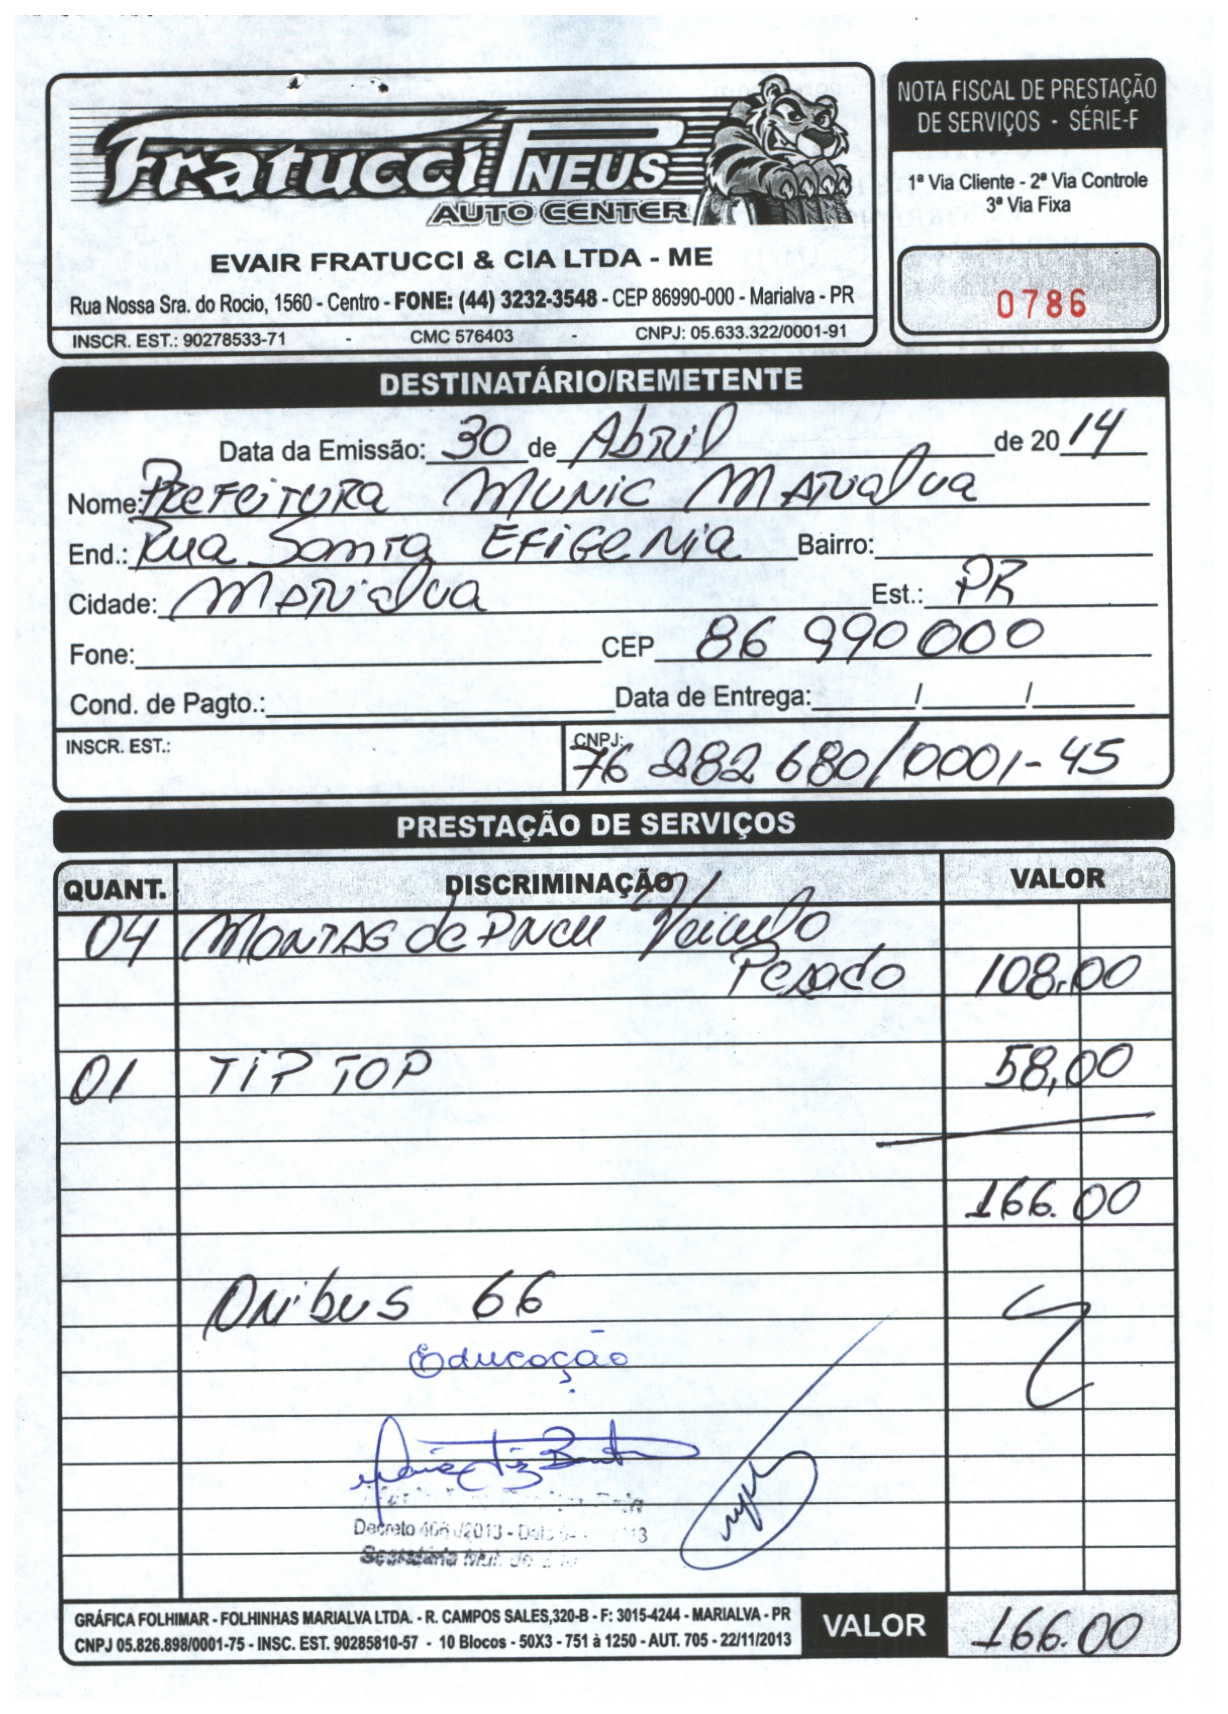 Fratucci PNEUS
AUTO CENTER
EVAIR FRATUCCI & CIA LTDA - ME
Rua Nossa Sra. do Rocio, 1560 - Centro - FONE: (44) 3232-3548 - CEP 86990-000 - Marialva - PR
INSCR. EST.: 90278533-71 - CMC 576403 - CNPJ: 05.633.322/0001-91
NOTA FISCAL DE PRESTAÇÃO
DE SERVIÇOS - SÉRIE-F
1ª Via Cliente - 2ª Via Controle
3ª Via Fixa
0786
DESTINATÁRIO/REMETENTE
Data da Emissão: 30 de Abril de 20 14
Nome: Prefeitura Munic Marialva
End.: Rua Santa Efigenia Bairro:
Cidade: Marialva Est.: PR
Fone: CEP 86 990 000
Cond. de Pagto.: Data de Entrega: / /
INSCR. EST.: CNPJ: 76 282 680/0001-45
PRESTAÇÃO DE SERVIÇOS
QUANT. DISCRIMINAÇÃO VALOR
04 Montag de Pneu Veiculo
Pesado 108,00
01 TIP TOP 58,00
166.00
Onibus 66
Educação
Decreto /2013
GRÁFICA FOLHIMAR - FOLHINHAS MARIALVA LTDA. - R. CAMPOS SALES,320-B - F: 3015-4244 - MARIALVA - PR
CNPJ 05.826.898/0001-75 - INSC. EST. 90285810-57 - 10 Blocos - 50X3 - 751 à 1250 - AUT. 705 - 22/11/2013
VALOR 166.00